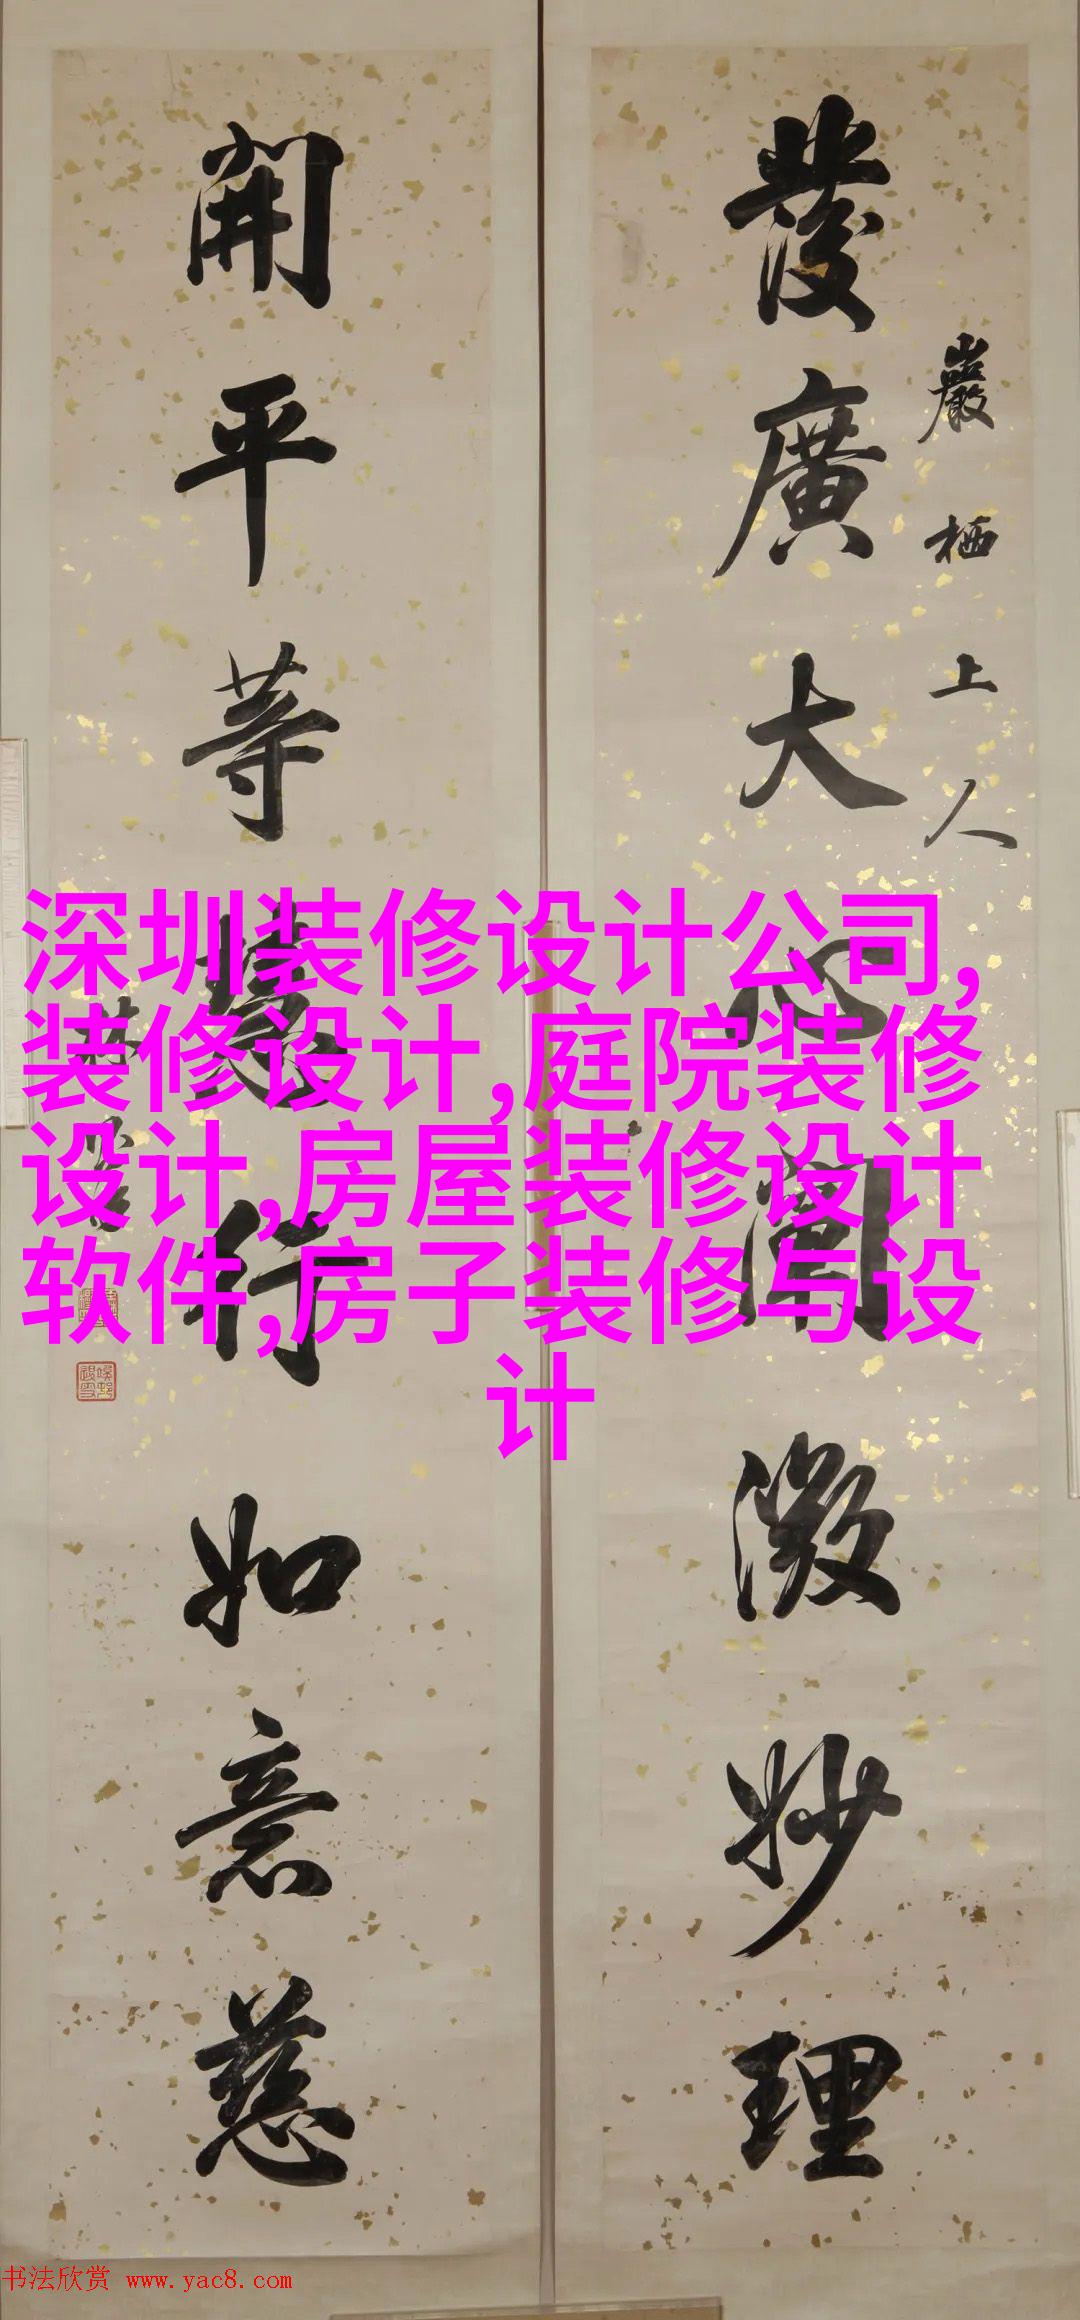 發廣大心闡微妙理
巖栖上人
開平等慧行如意慈
林
深圳装修设计公司,
装修设计,庭院装修
设计,房屋装修设计
软件,房子装修与设
计
书法欣赏 www.yac8.com